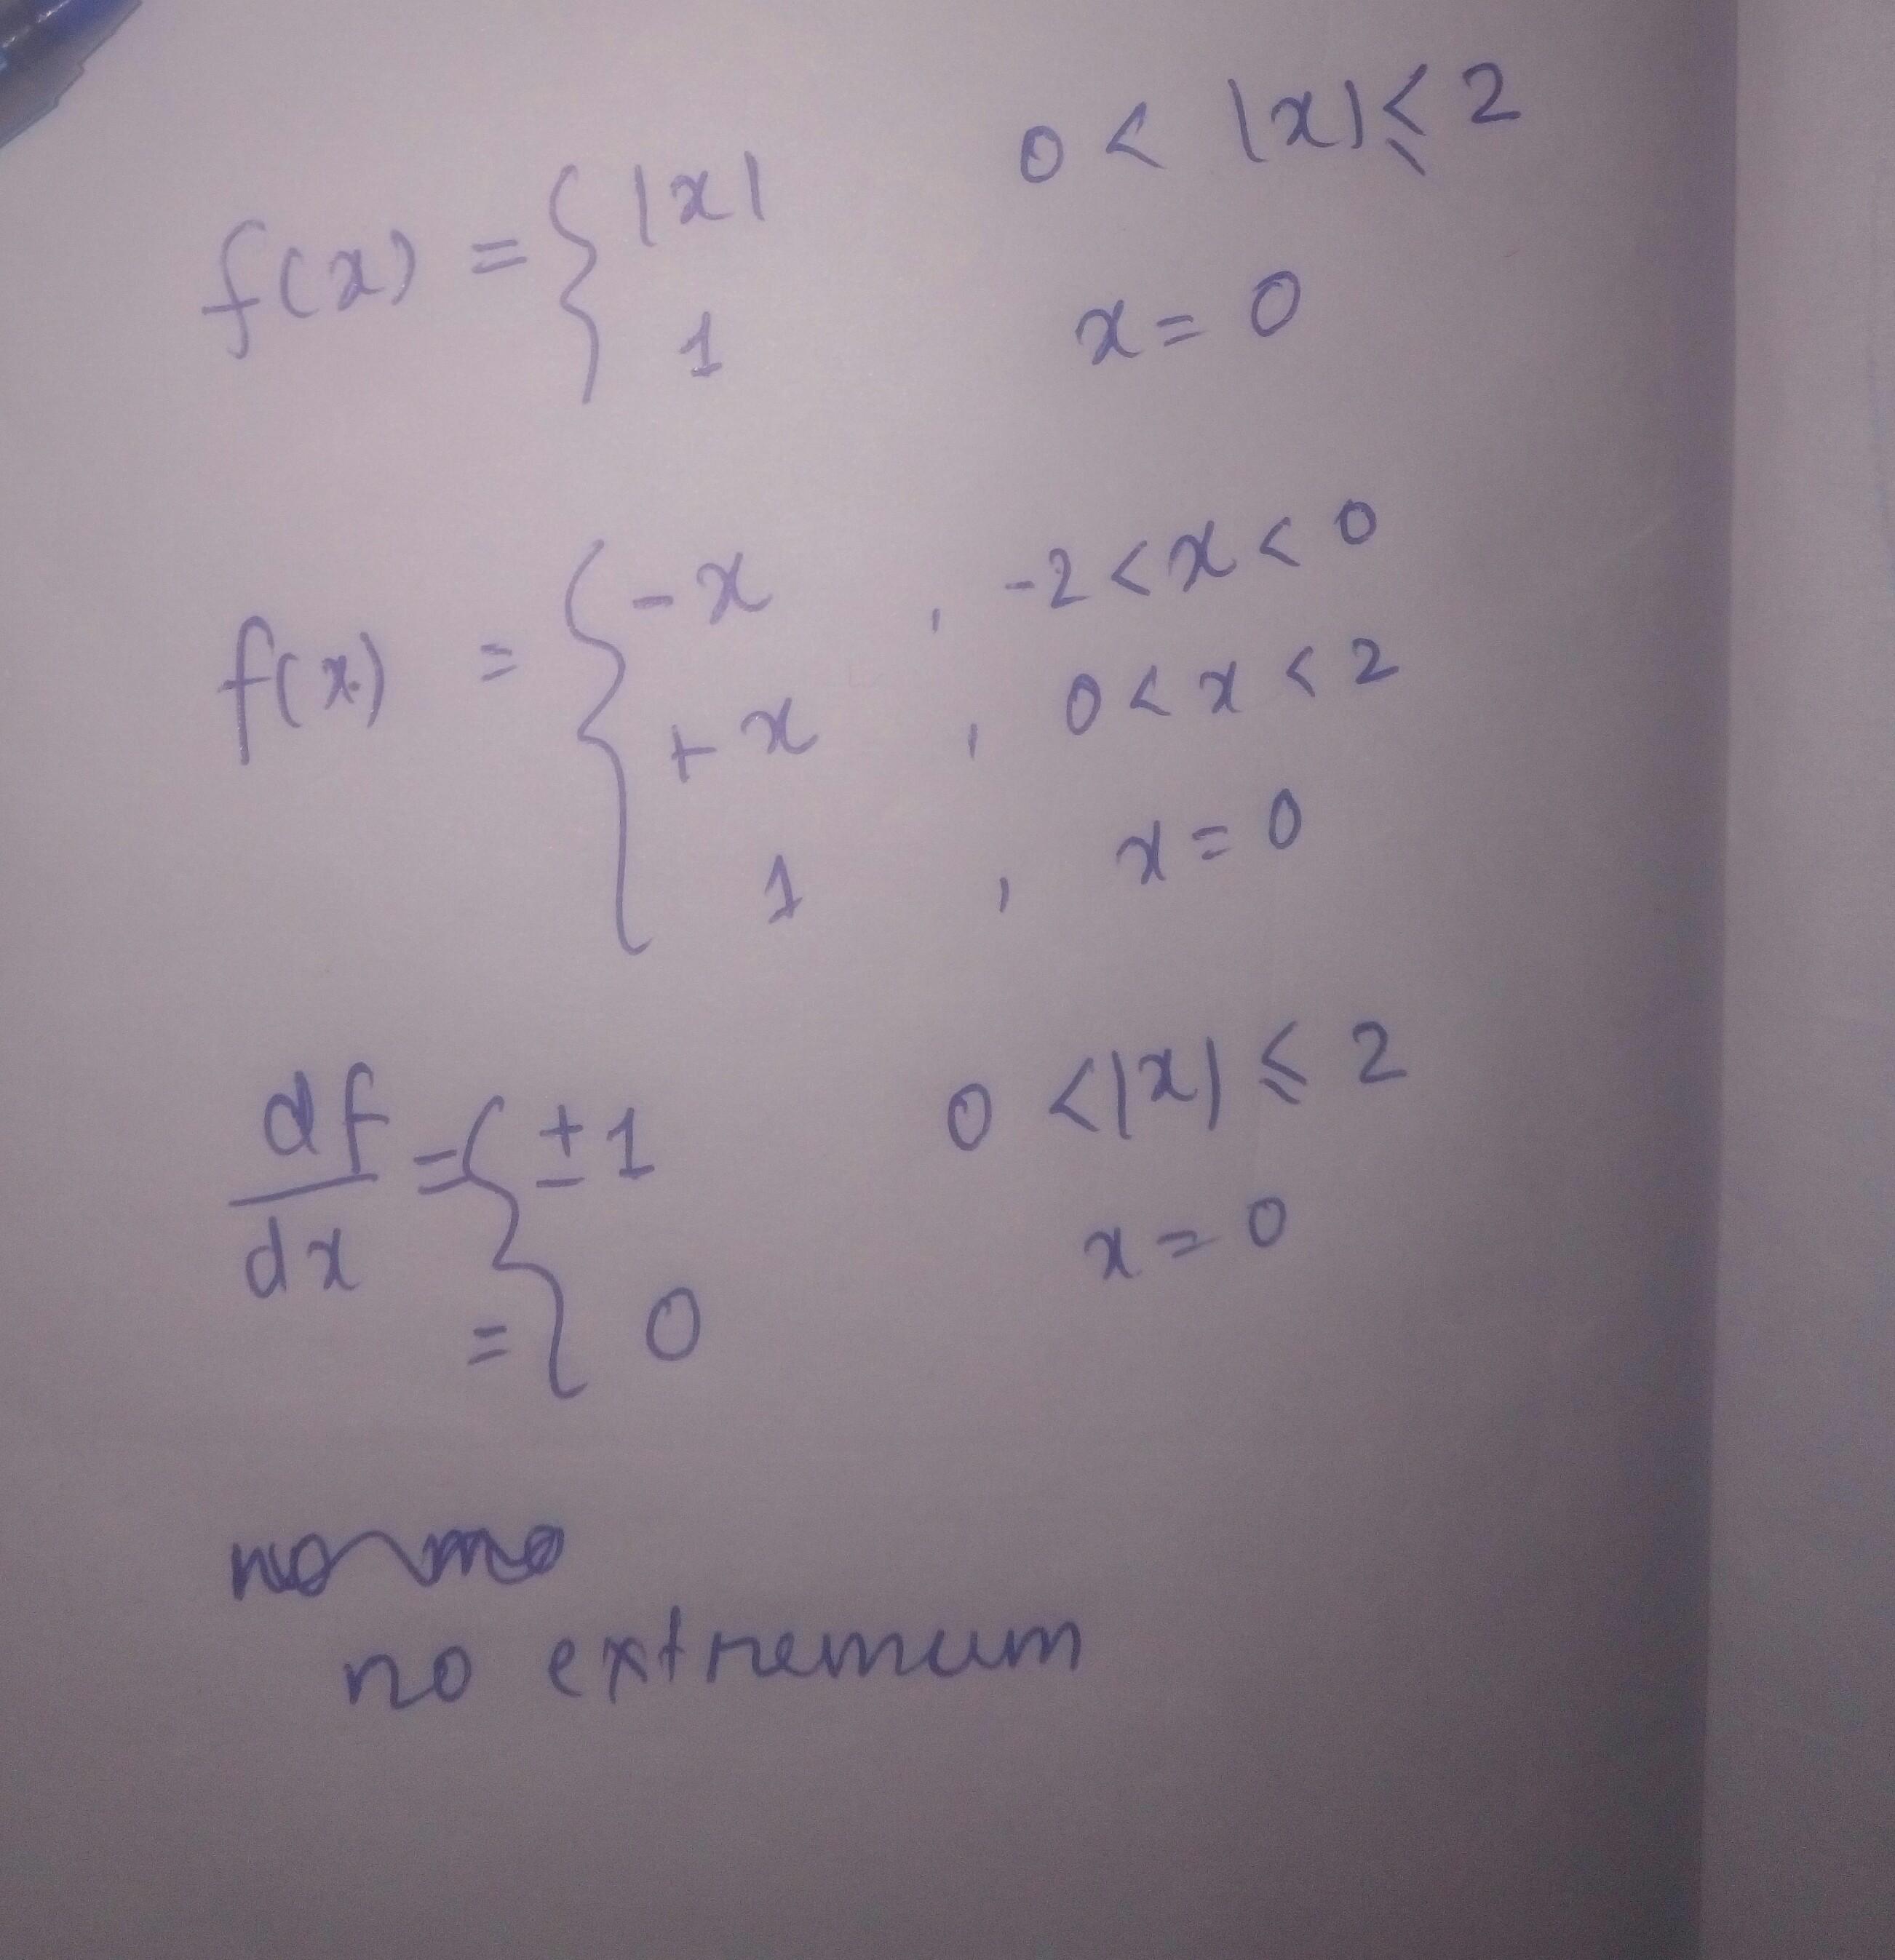 f(x) = { |x| 0 < |x| ≤ 2
1 x = 0
f(x) = { -x , -2 < x < 0
+x , 0 < x < 2
1 , x = 0
df/dx = { ±1 0 < |x| ≤ 2
= 0 x = 0
no extremum